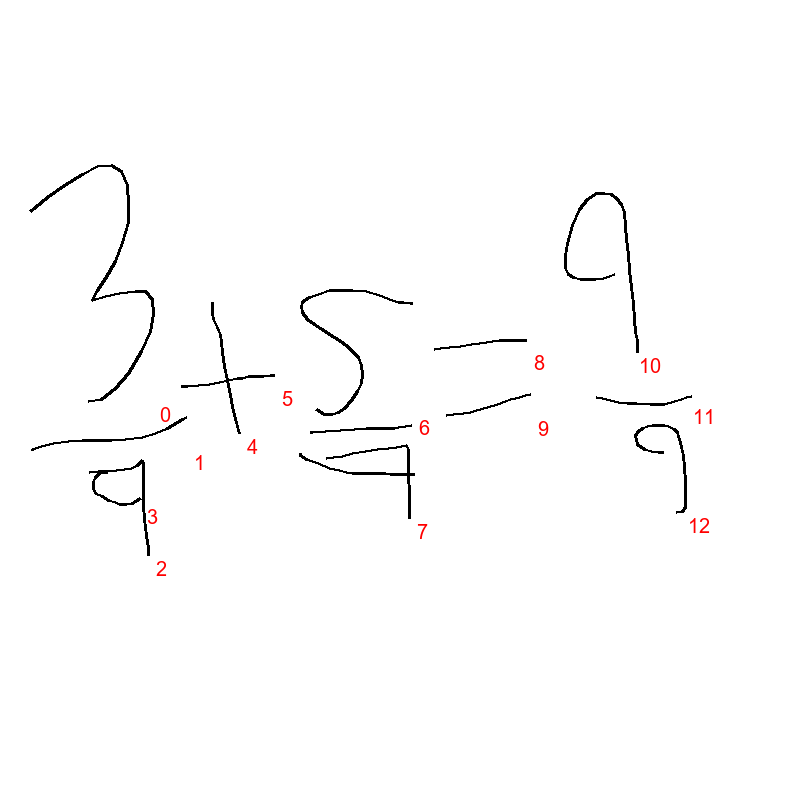 3/9 + 5/9 = 9/9
0 1 2 3 4 5 6 7 8 9 10 11 12